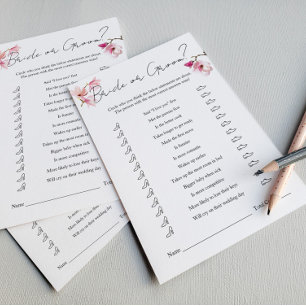 Bride or Groom?
Circle who you think the below statements are about.
The person with the most correct answers wins!
Said "I love you" first
Was the
Is funnier
Takes longer to get ready
Wakes up earlier
Bigger baby when sick
Is more competitive
More likely to lose their keys
Will cry on their wedding day
Name
Bride or Groom?
Circle who you think the below statements are about.
The person with the most correct answers wins!
Said "I love you" first
Was the
Is the better cook
Takes longer to get ready
Is more
Is funnier
Wakes up earlier
Takes up the most room in bed
Bigger baby when sick
Is more competitive
More likely to lose their keys
Will cry on their wedding day
Name